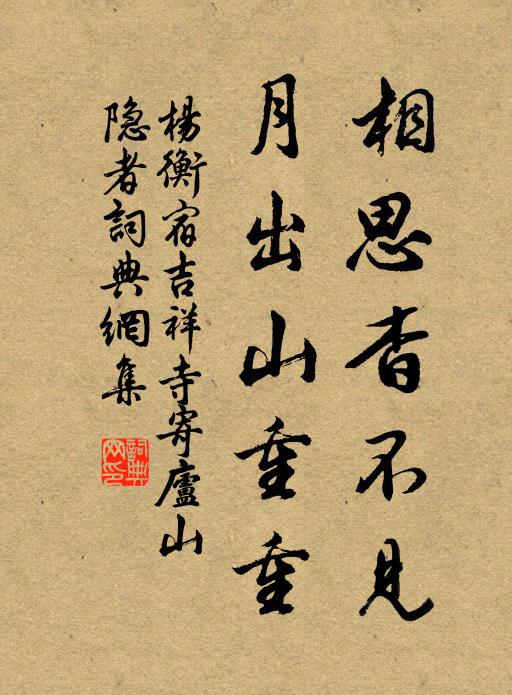 相思杳不見
月出山重重
楊衡宿吉祥寺寄廬山
隐者詞典網集
詞典
网印